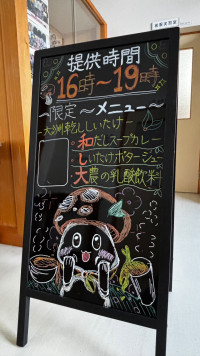 提供時間
16時～19時
～限定～メニュー～
大洲乾ししいたけ
・和だしスープカレー
・しいたけポタージュ
・大農の乳酸飲料